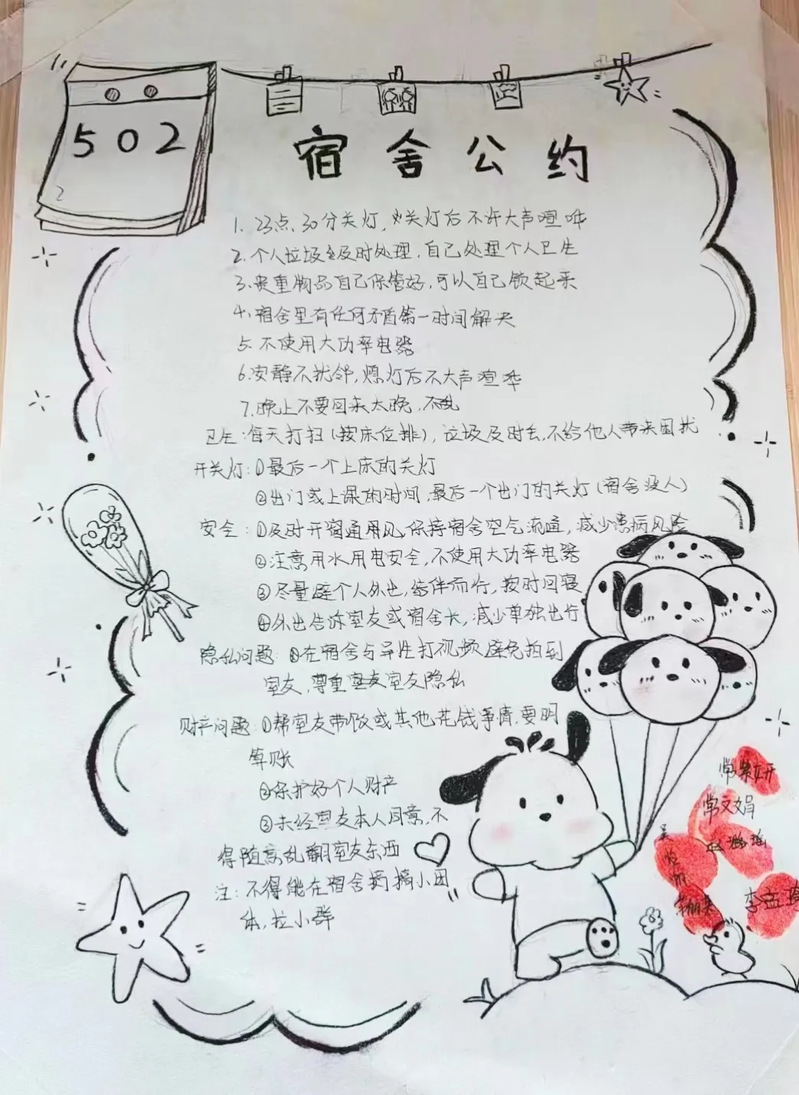 502
宿舍公约
1. 23点、30分关灯,关灯后不许大声喧哗
2. 个人垃圾及时处理,自己处理个人卫生
3. 贵重物品自己保管好,可以自己锁起来
4. 宿舍里有任何矛盾第一时间解决
5. 不使用大功率电器
6. 安静不扰邻,熄灯后不大声喧哗
7. 晚上不要回来太晚,不乱
卫生:每天打扫(按床位排),垃圾及时丢,不给他人带来困扰
开关灯:①最后一个上床的关灯
②出门或上课的时间,最后一个出门的关灯(宿舍没人)
安全:①及时开窗通风,保持宿舍空气流通,减少患病风险
②注意用水用电安全,不使用大功率电器
③尽量避个人外出,结伴而行,按时回寝
④外出告诉室友或宿舍长,减少单独出行
隐私问题:①在宿舍与异性打视频,避免拍到
室友,尊重室友隐私
财产问题:①帮室友带饭或其他花钱事情,要明
算账
②保护好个人财产
③未经室友本人同意,不
得随意乱翻室友东西
注:不得能在宿舍搞小团
体,拉小群